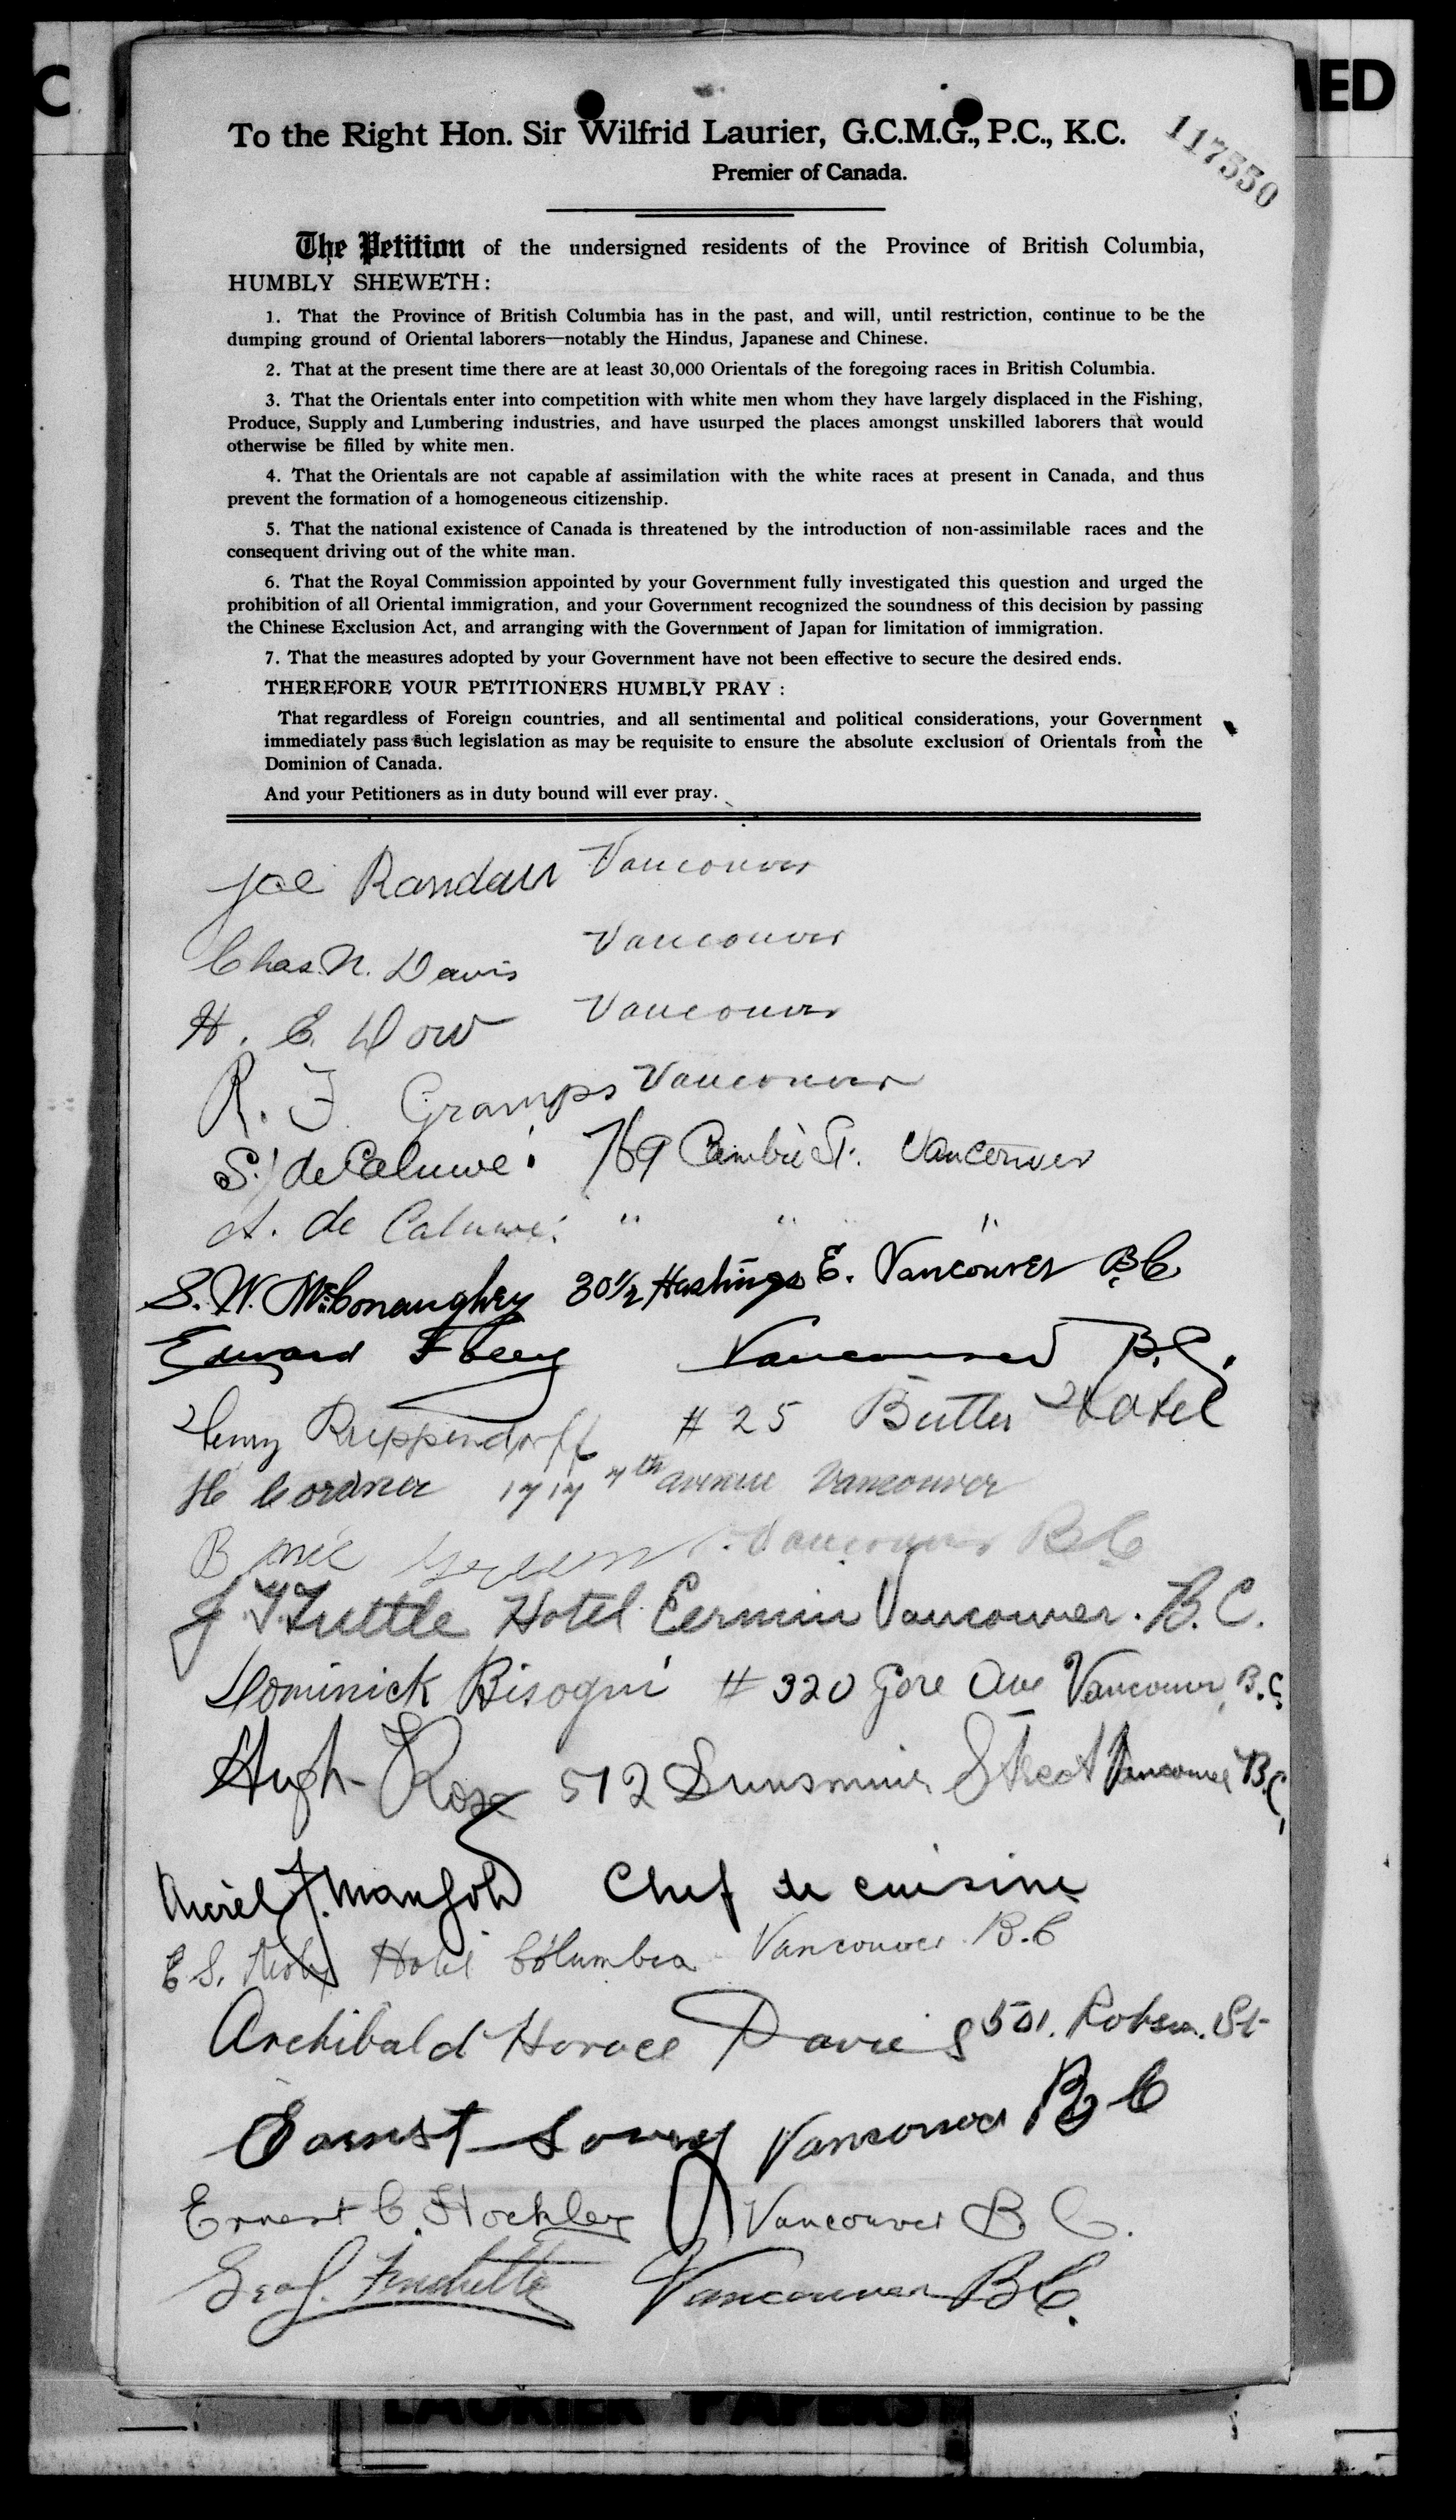 C
MED
To the Right Hon. Sir Wilfrid Laurier, G.C.M.G., P.C., K.C.
Premier of Canada.
117550
The Petition of the undersigned residents of the Province of British Columbia,
HUMBLY SHEWETH:
1. That the Province of British Columbia has in the past, and will, until restriction, continue to be the
dumping ground of Oriental laborers—notably the Hindus, Japanese and Chinese.
2. That at the present time there are at least 30,000 Orientals of the foregoing races in British Columbia.
3. That the Orientals enter into competition with white men whom they have largely displaced in the Fishing,
Produce, Supply and Lumbering industries, and have usurped the places amongst unskilled laborers that would
otherwise be filled by white men.
4. That the Orientals are not capable af assimilation with the white races at present in Canada, and thus
prevent the formation of a homogeneous citizenship.
5. That the national existence of Canada is threatened by the introduction of non-assimilable races and the
consequent driving out of the white man.
6. That the Royal Commission appointed by your Government fully investigated this question and urged the
prohibition of all Oriental immigration, and your Government recognized the soundness of this decision by passing
the Chinese Exclusion Act, and arranging with the Government of Japan for limitation of immigration.
7. That the measures adopted by your Government have not been effective to secure the desired ends.
THEREFORE YOUR PETITIONERS HUMBLY PRAY :
That regardless of Foreign countries, and all sentimental and political considerations, your Government
immediately pass such legislation as may be requisite to ensure the absolute exclusion of Orientals from the
Dominion of Canada.
And your Petitioners as in duty bound will ever pray.
Joe Randall Vancouver
Chas. N. Davis Vancouver
H. E. Dow Vancouver
R. F. Gramps Vancouver
S. de Caluwé: 769 Cambie St. Vancouver
A. de Caluwé: " " " "
S. W. McConaughey 30½ Hastings E. Vancouver B.C
Edward Foley Vancouver B.C.
Henry Rruppendorff # 25 Butler Hotel
H Cordner 1717 7th avenue Vancouver
B Vancouver BC
J. T. Tuttle Hotel Vancouver. B.C.
Dominick Bisogni # 320 Gore Ave Vancouver B.C
Hugh Ross 512 Dunsmuir Street Vancouver B.C.
Chef de cuisine
E S. Hotel Columbia Vancouver B.C
Archibald Horace Davies 501. Robson. St
Earnst Vancouver B C
Ernest C. Stockley Vancouver B. C.
Geo J. Frechette Vancouver BC.
LAURIER PAPERS